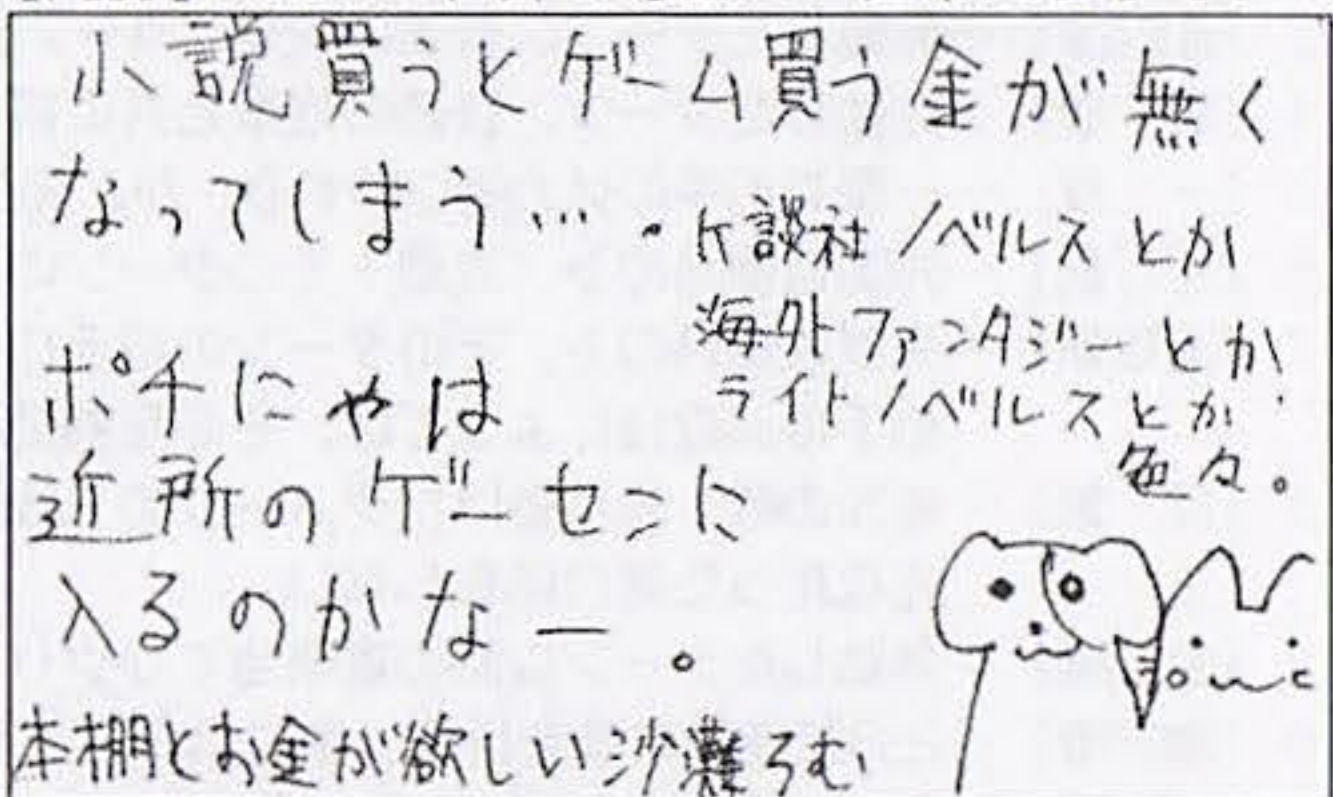 小説買うとゲーム買う金が無く
なってしまう…。
K談社ノベルスとか
海外ファンタジーとか
ライトノベルスとか
色々。
ポチにゃは
近所のゲーセンに
入るのかなー。
本棚とお金が欲しい沙灘ろむ